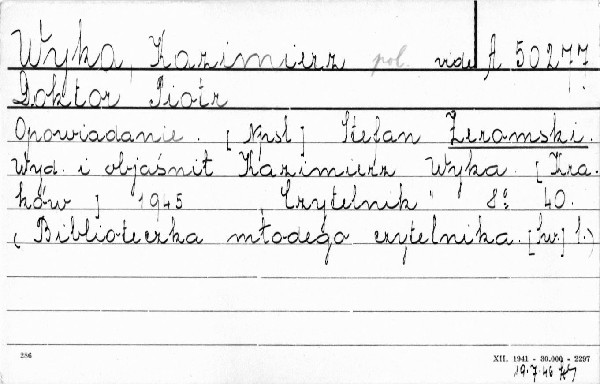 Wyka, Kazimierz pol. vide A 50277
Doktor Piotr
Opowiadanie. [Npsł] Stefan Żeromski.
Wyd. i objaśnił Kazimierz Wyka. [Kra-
ków] 1945 "Czytelnik" 8° 40.
(Biblioteczka młodego czytelnika. [Sw.] 1.)
286
XII. 1941 - 30.000 - 2297
19.7.46